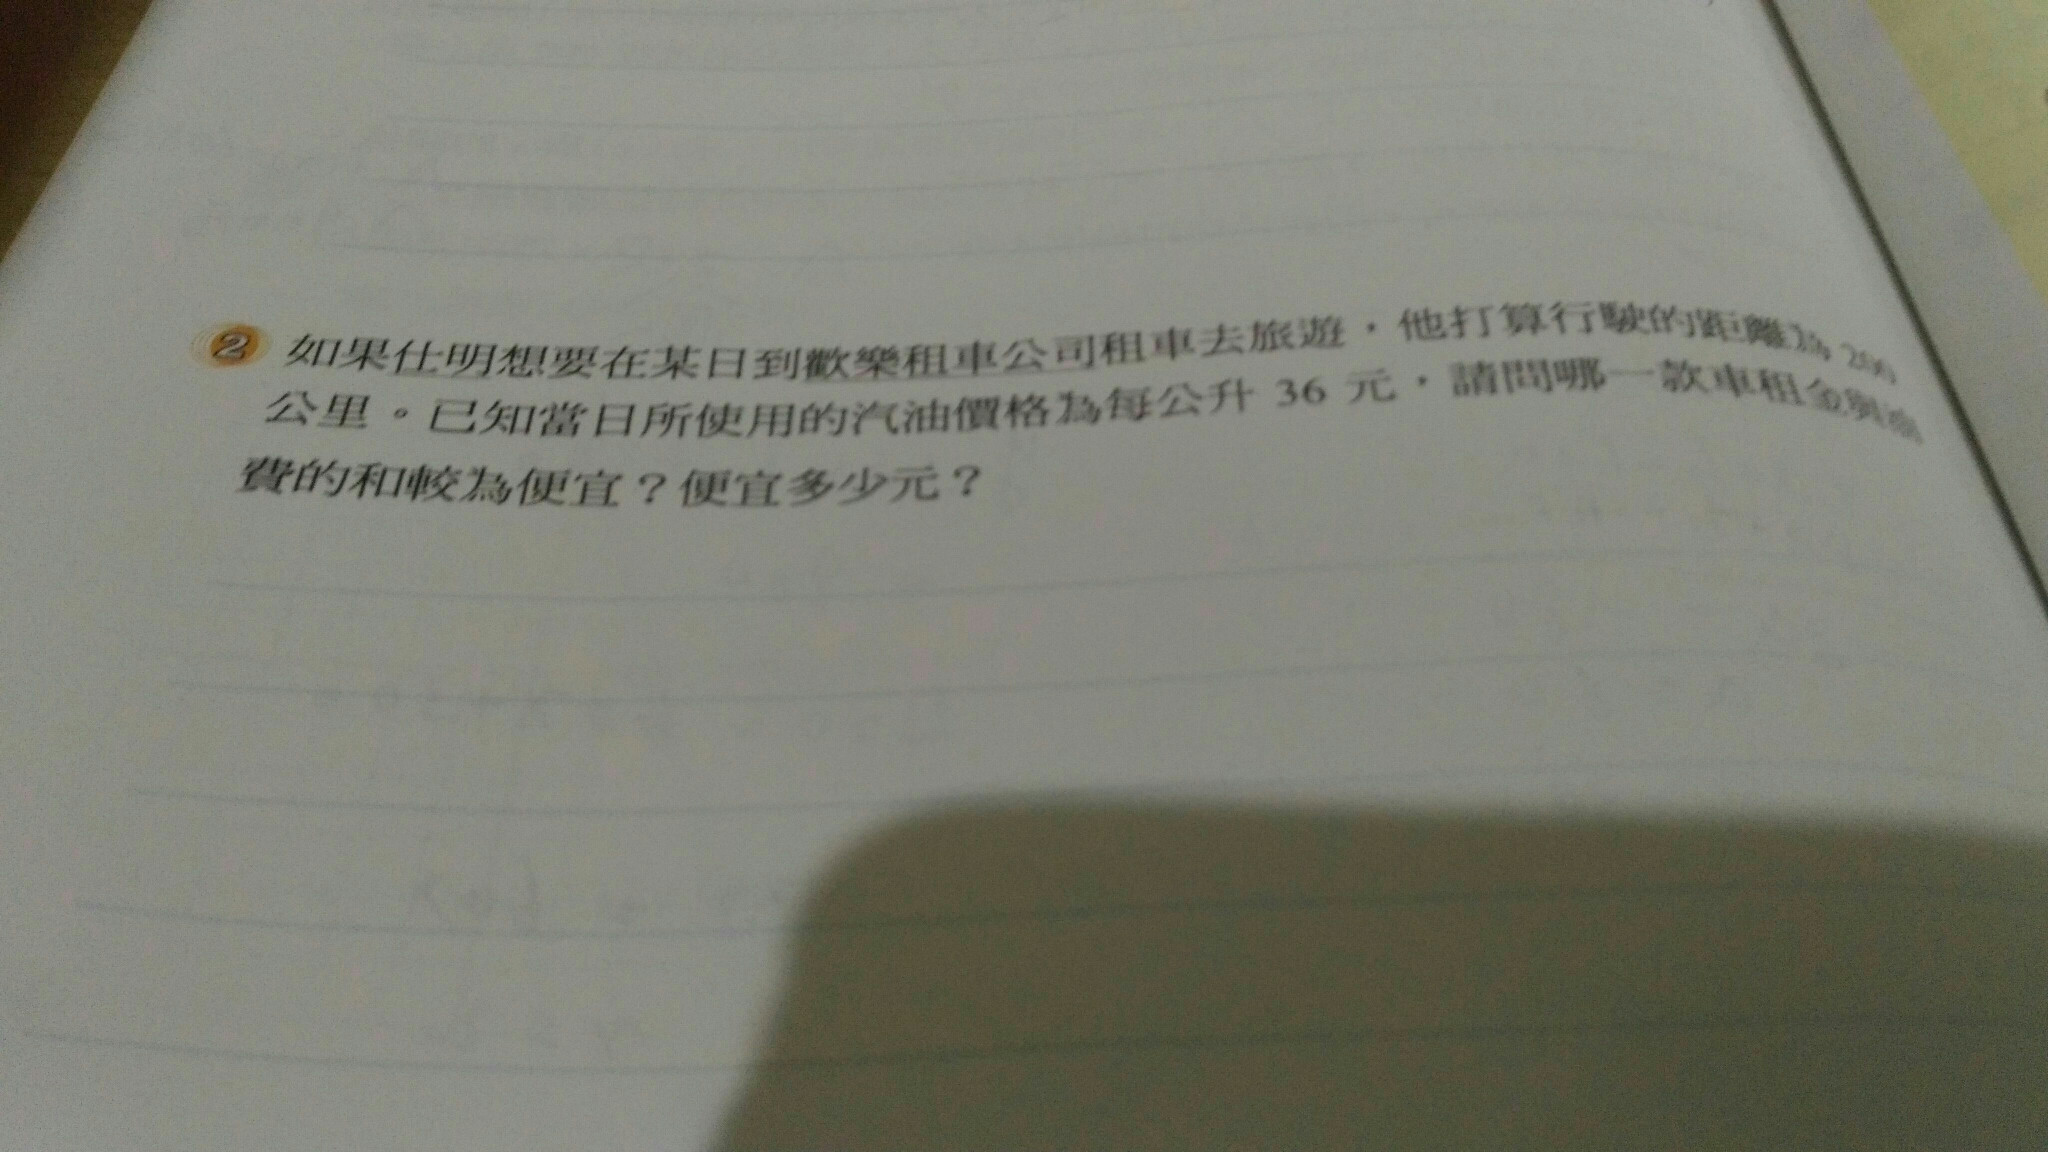 2 如果仕明想要在某日到歡樂租車公司租車去旅遊，他打算行駛的距離為 200
公里。已知當日所使用的汽油價格為每公升 36 元，請問哪一款車租金與油
費的和較為便宜？便宜多少元？